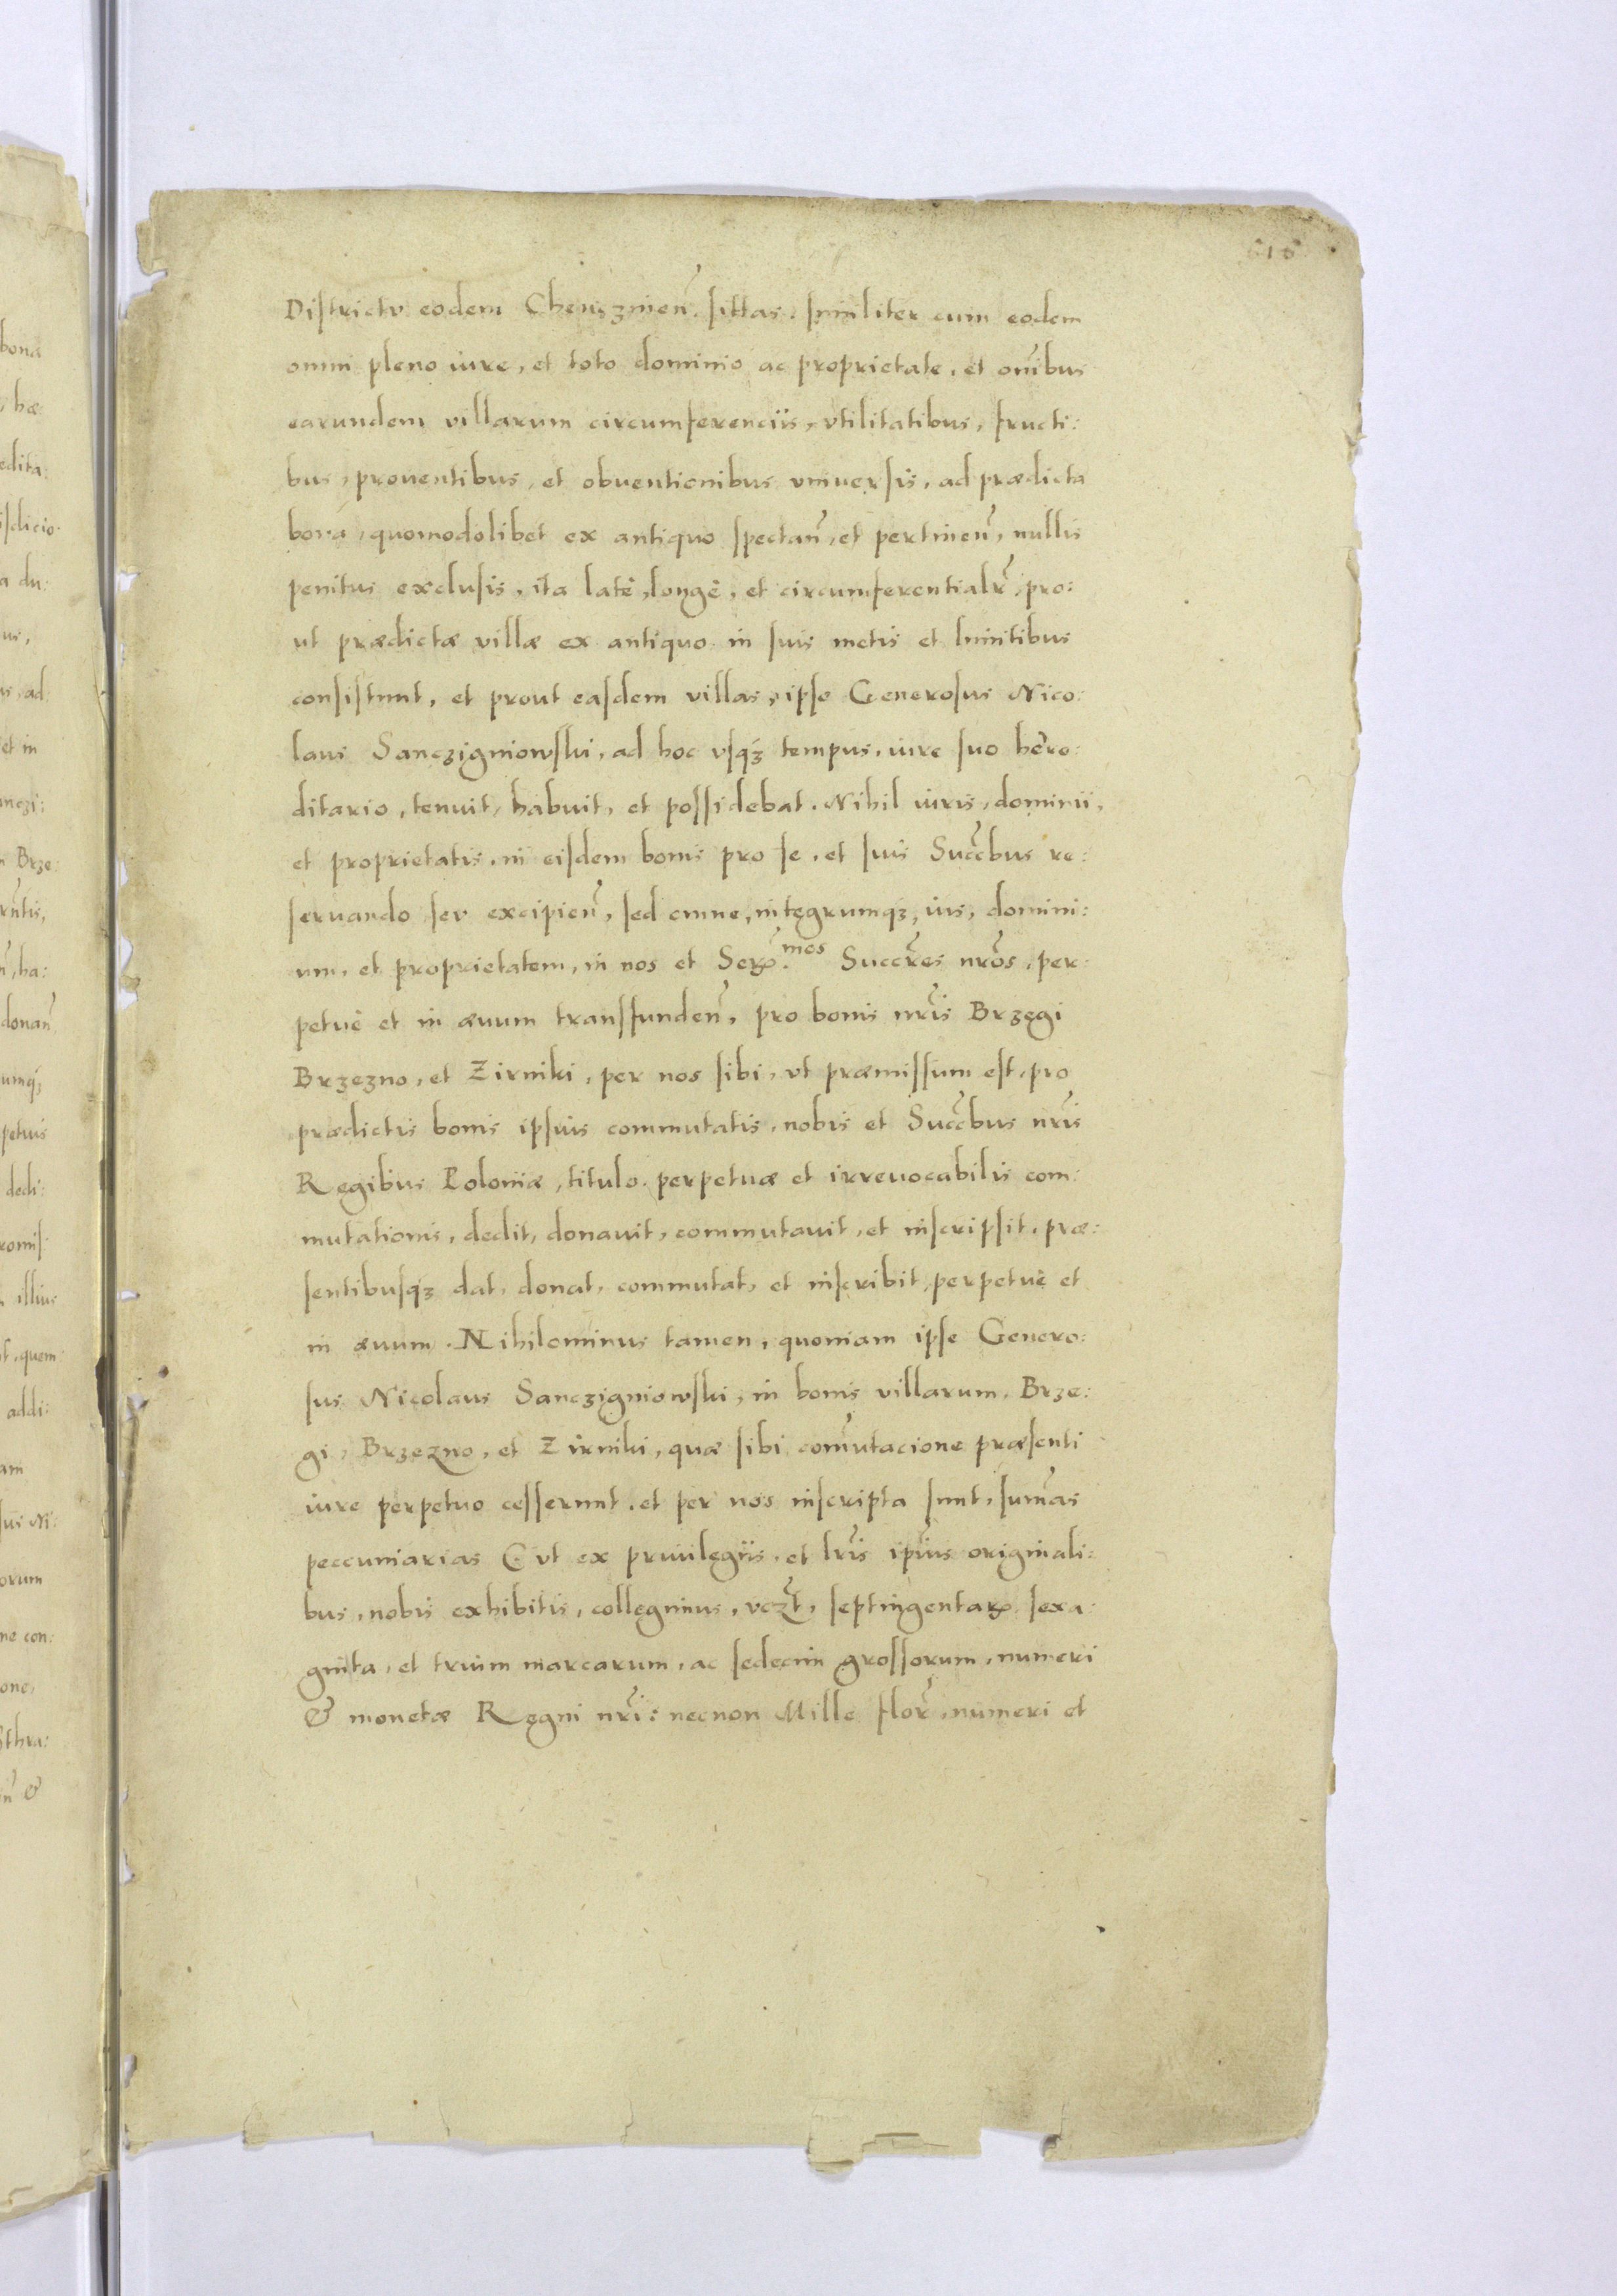 Districtu eodem Chenznien̄. sittas. similiter cum eodem
omni pleno iure, et toto dominio ac proprietate, et om̄ibus
earundem villarum circumferenciis, vtilitatibus, fructi:
bus, prouentibus, et obuentionibus vniuersis, ad prædicta
bona, quomodolibet ex antiquo spectan̄, et pertinen̄, nullis
penitus exclusis, ita latè, longè, et circumferentialr̄, pro:
ut prædictæ villæ ex antiquo in suis metis et limitibus
consistunt, et prout easdem villas, ipse Generosus Nico:
laus Sanczigniowski, ad hoc vsqʒ tempus, iure suo hære:
ditario, tenuit, habuit, et possidebat. Nihil iuris, dominii,
et proprietatis, in eisdem bonis pro se, et suis Succ̄bus re:
seruando seu excipien̄, sed omne, integrumqʒ, ius, domini:
um, et proprietatem, in nos et Seꝝ.mos Succr̄es nr̄os, per:
petuè et in æuum transfunden̄, pro bonis nr̄is Brzegi
Brzezno, et Zirniki, per nos sibi, vt præmissum est, pro
prædictis bonis ipsius commutatis, nobis et Succ̄bus nr̄is
Regibus Poloniæ, titulo perpetuæ et irreuocabilis com:
mutationis, dedit, donauit, commutauit, et inscripsit, præ:
sentibusqʒ dat, donat, commutat, et inscribit, perpetuè et
in æuum. Nihilominus tamen, quoniam ipse Genero:
sus Nicolaus Sanczigniowski, in bonis villarum, Brze:
gi, Brzezno, et Zirniki, quæ sibi com̄utacione præsenti
iure perpetuo cesserunt, et per nos inscripta sunt, sum̄as
peccuniarias C vt ex priuilegiis, et lr̄is ip̄ius originali:
bus, nobis exhibitis, collegimus, vczt̄, septingentaꝝ sexa:
ginta, et trium marcarum, ac sedecim grossorum, numeri
& monetæ Regni nr̄i: necnon Mille flor̄, numeri et